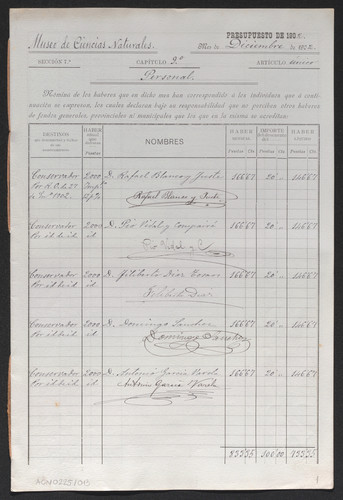 PRESUPUESTO DE 190
Museo de Ciencias Naturales.
Mes de Diciembre de 1902
SECCIÓN 7.ª CAPÍTULO 9.º ARTÍCULO único
Personal.
Nómina de los haberes que en dicho mes han correspondido á los individuos que á conti-
nuación se expresan, los cuales declaran bajo su responsabilidad que no perciben otros haberes
de fondos generales, provinciales ó municipales que los que en la misma se acreditan.
DESTINOS HABER NOMBRES HABER IMPORTE HABER
Pesetas Pesetas Cts. Pesetas Cts. Pesetas Cts.
Conservador 2000 D. Rafael Blanco y Juste 166 67 20 " 146 67
1902 Rafael Blanco y Juste
Conservador 2000 D. Pío Vidal y Compairé 166 67 20 " 146 67
Por id. id. id. id. Pío Vidal y C
Conservador 2000 D. Filiberto Díaz 166 67 20 " 146 67
Por id. id. id. id. Filiberto Díaz
Conservador 2000 D. Domingo Sánchez 166 67 20 " 146 67
Por id. id. id. id. Domingo Sánchez
Conservador 2000 D. Antonio García Varela 166 67 20 " 146 67
Por id. id. id. id. Antonio García Varela
100 00